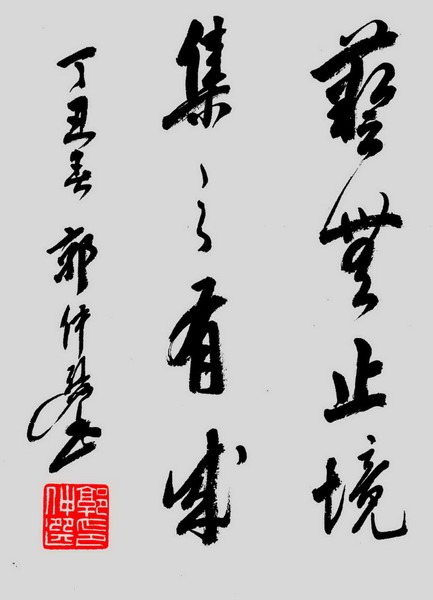 藝無止境
集之有成
丁丑春 郭仲選書
郭印仲選